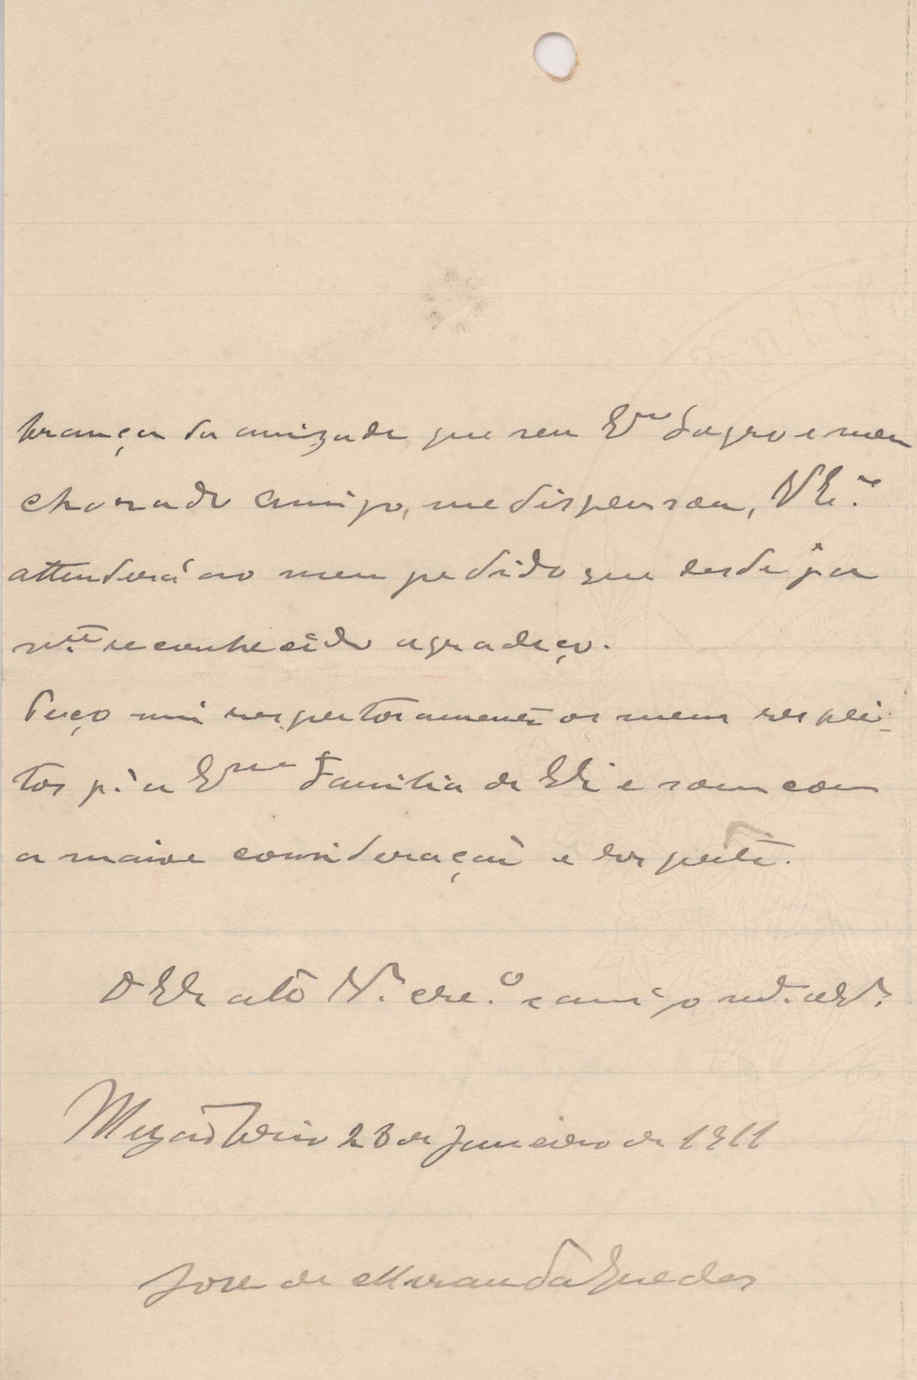 brança da amizade que seu Ex.mo Sogro e meu
chorado amigo, me dispensou, V Ex.ª
attenderá ao meu pedido que desde já
m.to reconhecido agradeço.
Peço mui respeitosamente os meus respei-
tos p.ª a Ex.ma Familia de VEx.ª e sou com
a maior consideração e respeito.
De VEx.ª att.o V.or cre.o e amigo
Mezão Frio 23 de Janeiro de 1911
José de Miranda Guedes